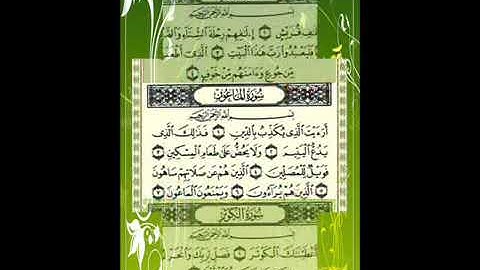 بِسْمِ ٱللَّهِ ٱلرَّحْمَٰنِ ٱلرَّحِيمِ
قُرَيْشٍ ۝١ إِۦلَٰفِهِمْ رِحْلَةَ ٱلشِّتَآءِ
فَلْيَعْبُدُوا۟ رَبَّ هَٰذَا ٱلْبَيْتِ ۝٣ ٱلَّذِىٓ
مِّن جُوعٍ وَءَامَنَهُم مِّنْ خَوْفٍۭ ۝٤
سُورَةُ المَاعُونِ
بِسْمِ ٱللَّهِ ٱلرَّحْمَٰنِ ٱلرَّحِيمِ
أَرَءَيْتَ ٱلَّذِى يُكَذِّبُ بِٱلدِّينِ ۝١ فَذَٰلِكَ ٱلَّذِى
يَدُعُّ ٱلْيَتِيمَ ۝٢ وَلَا يَحُضُّ عَلَىٰ طَعَامِ ٱلْمِسْكِينِ ۝٣
فَوَيْلٌ لِّلْمُصَلِّينَ ۝٤ ٱلَّذِينَ هُمْ عَن صَلَاتِهِمْ سَاهُونَ ۝٥
ٱلَّذِينَ هُمْ يُرَآءُونَ ۝٦ وَيَمْنَعُونَ ٱلْمَاعُونَ ۝٧
سُورَةُ الكَوْثَرِ
بِسْمِ ٱللَّهِ ٱلرَّحْمَٰنِ ٱلرَّحِيمِ
ٱلْكَوْثَرَ ۝١ فَصَلِّ لِرَبِّكَ وَٱنْحَرْ